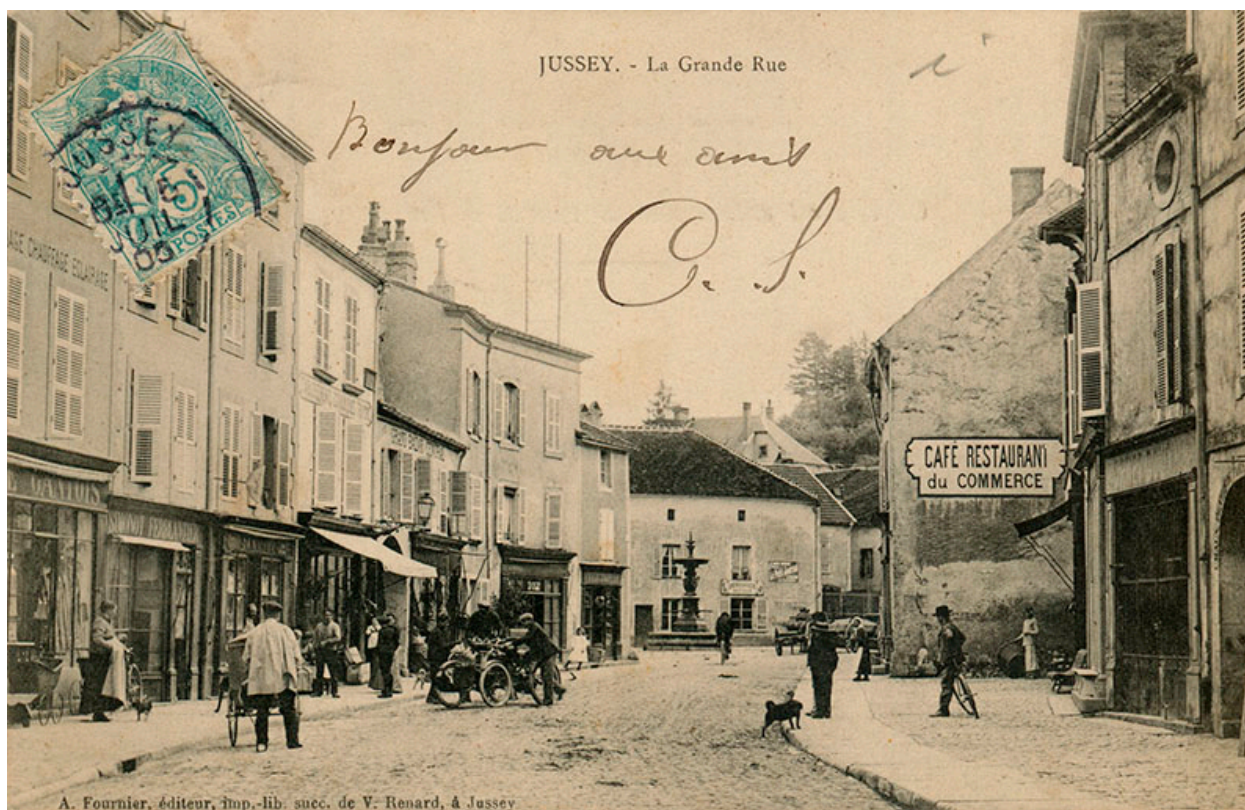 JUSSEY. - La Grande Rue
Bonjour aux amis
C. S.
JUSSEY
JUIL
05
5
POSTES
CHAUFFAGE ECLAIRAGE
CAFÉ RESTAURANT
du COMMERCE
A. Fournier, éditeur, imp.-lib. succ. de V. Renard, à Jussey